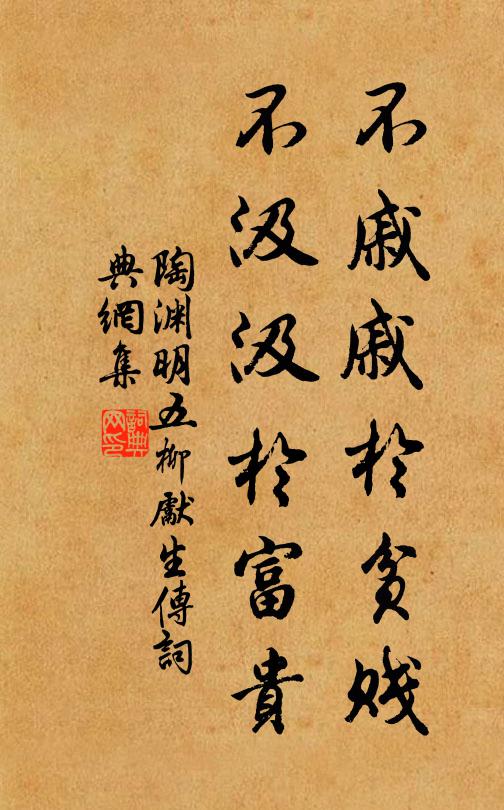 不戚戚於貧賤
不汲汲於富貴
陶淵明五柳獻生傳詞
典網集
詞典網印